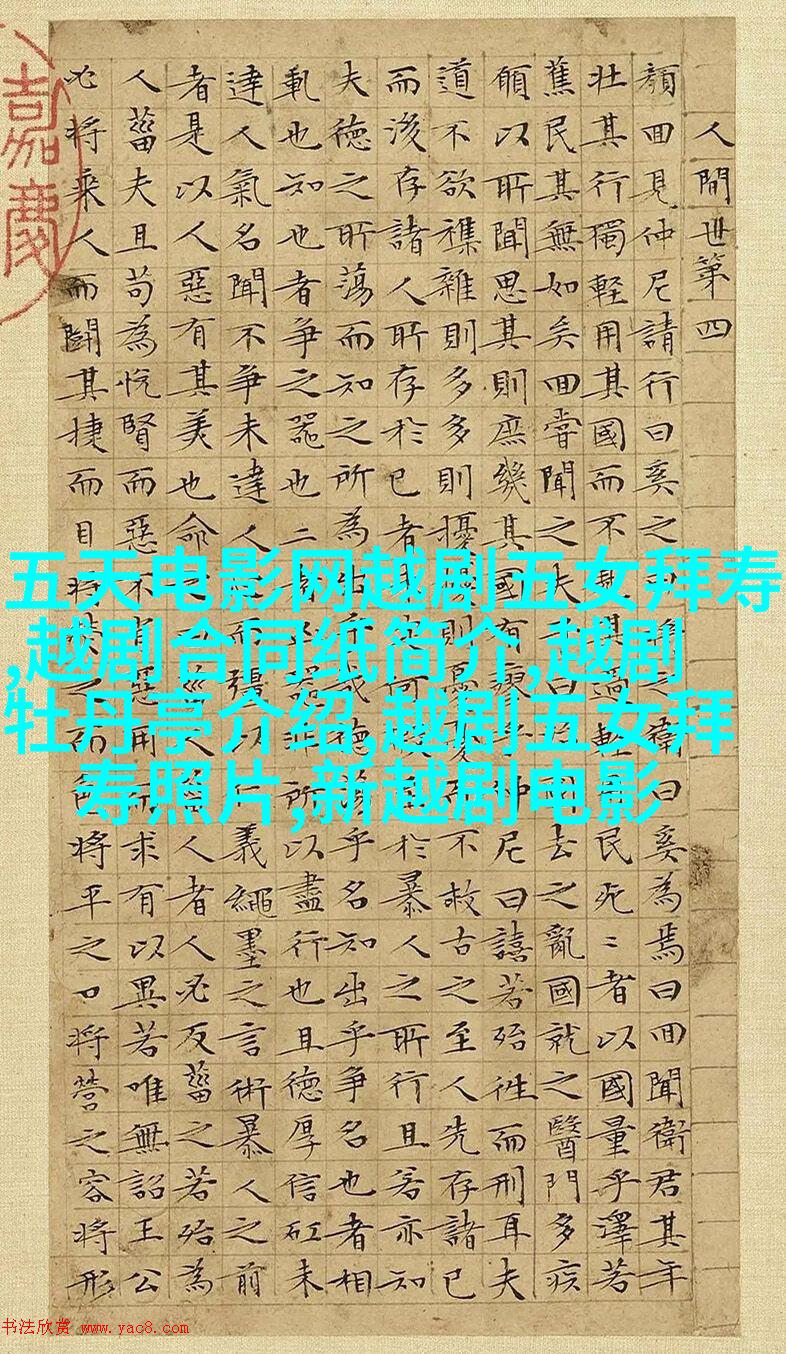 人間世第四
顏回見仲尼請行曰奚之曰之衛曰奚為焉曰回聞衛君其年
壯其行獨輕用其國而不其過輕民死〻者以國量乎澤若
蕉民其無如矣回嘗聞之夫曰國去之亂國就之醫門多疾
願以所聞思其則庶幾其國有瘳乎仲尼曰譆若殆往而刑耳夫
道不欲襍雜則多多則擾則憂而不救古之至人先存諸已
而後存諸人所存於已者何於暴人之所行且若亦知
夫德之所蕩而知之所為出乎哉德乎名知出乎爭名也者相
軋也知也者爭之器也二者器非所以盡行也且德厚信矼未
達人氣名聞不爭未達人而彊以義繩墨之言術暴人之前
者是以人惡有其美也命之人人者人必反菑之若殆為
人菑夫且苟為悅賢而惡不惡用而求有以異若唯無詔王公
必將乘人而鬭其捷而目將之而色將平之口將營之容將形
嘉慶
五天电影网越剧五女拜寿
,越剧合同纸简介,越剧
牡丹亭介绍,越剧五女拜
寿照片,新越剧电影
书法欣赏 www.yac8.com